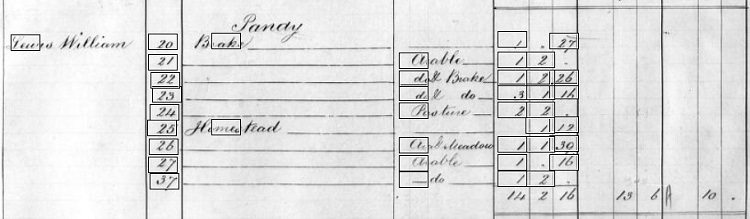 Pandy
Lewis William 20 Brake 1 . 27
21 Arable 1 2 .
22 do & Brake 1 2 26
23 do & do 3 1 16
24 Pasture 2 2 .
25 Homestead 1 12
26 Arab Meadow 1 1 30
27 Arable 1 . 16
37 do 1 2 .
14 2 16 13 6 10 .